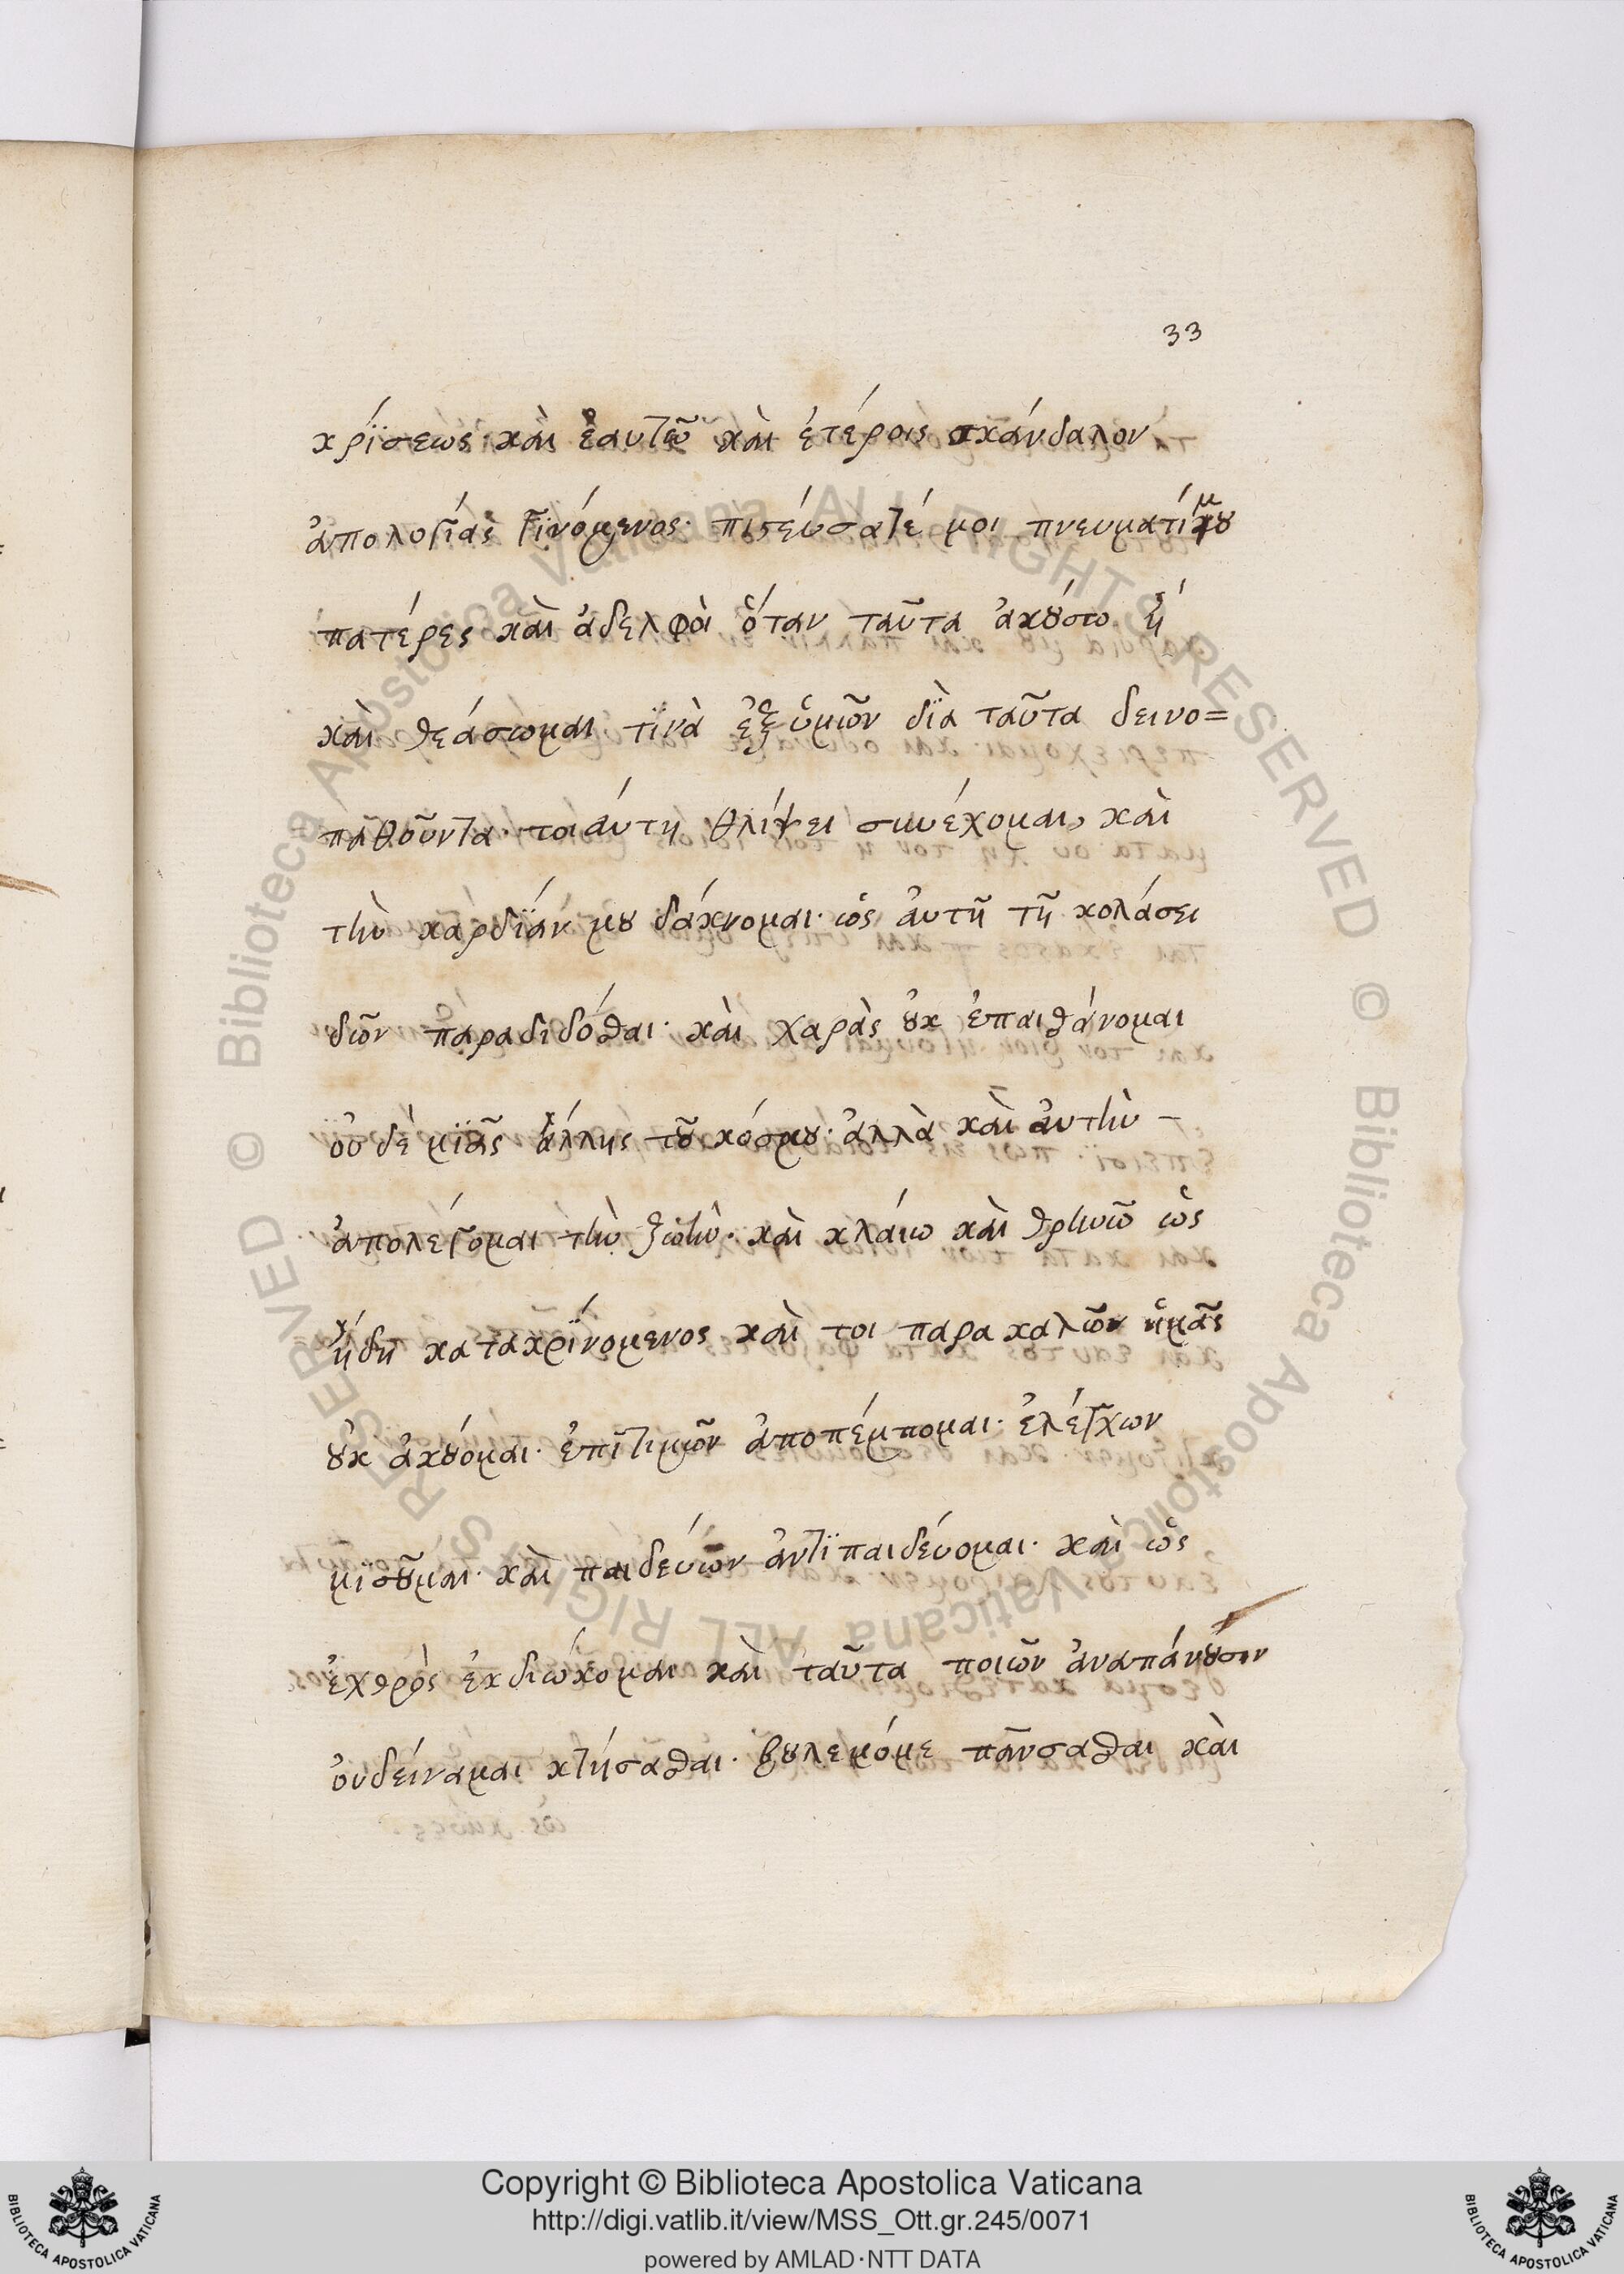 33
κρίσεως· καὶ ἑαυτῶ καὶ ἑτέροις σκάνδαλον
ἀπολογίας γϊνόμενος· πιστεύσατέ μοι πνευματί μου
πατέρες καὶ ἀδελφοὶ ὅταν ταῦτα ἀκούσω ἢ
καὶ θεάσωμαι τϊνὰ ἐξ ὑμῶν δϊὰ ταῦτα δεινο=
παθοῦντα· τοιάυτη θλίψει συνέχομαι, καὶ
τὴν καρδΐαν μου δάκνομαι· ὡς ἀυτῆ τῆ κολάσει
δῶν παραδιδόσθαι· καὶ χαρὰς οὐκ ἐπαισθάνομαι
οὐδὲ μϊᾶς ἄλλης τοῦ κόσμου· ἀλλὰ καὶ ἀυτὴν -
ἀπολέγομαι τὴν ζωὴν· καὶ κλάιω καὶ θρηνῶ ὡς
ἤδη κατακρΐνομενος καὶ τοι παρακαλῶν ἡμᾶς
οὐκ ἀκούομαι· ἐπϊτιμῶν ἀποπέμπομαι· ἐλέγχων
μισοῦμαι· καὶ παιδεύων ἀντϊπαιδεύομαι· καὶ ὡς
ἐχθρὸς ἐκδιώκομαι καὶ ταῦτα ποιῶν ἀναπάυουσιν
οὐδείναμαι κτήσασθαι· βουλεμόμε πᾶυσασθαι καὶ
Copyright © Biblioteca Apostolica Vaticana
http://digi.vatlib.it/view/MSS_Ott.gr.245/0071
powered by AMLAD·NTT DATA